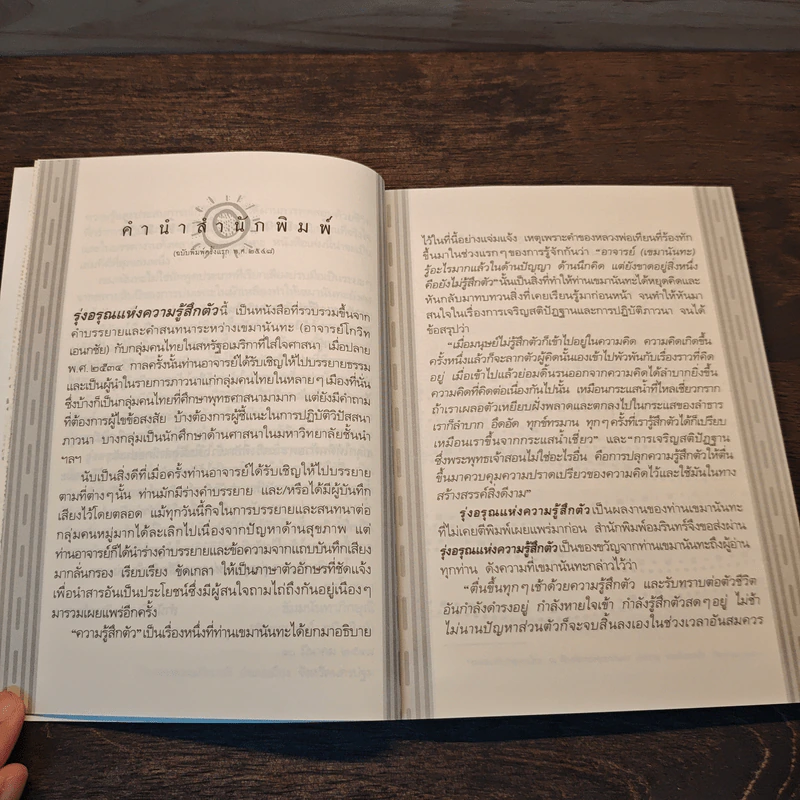 คำนำสำนักพิมพ์
(ฉบับพิมพ์ครั้งแรก พ.ศ. ๒๕๔๘)
รุ่งอรุณแห่งความรู้สึกตัวนี้ เป็นหนังสือที่รวบรวมขึ้นจาก
คำบรรยายและคำสนทนาระหว่างเขมานันทะ (อาจารย์โกวิท
เอนกชัย) กับกลุ่มคนไทยในสหรัฐอเมริกาที่ใส่ใจศาสนา เมื่อปลาย
พ.ศ. ๒๕๓๔ กาลครั้งนั้นท่านอาจารย์ได้รับเชิญให้ไปบรรยายธรรม
และเป็นผู้นำในรายการภาวนาแก่กลุ่มคนไทยในหลายๆ เมืองที่นั่น
ซึ่งบ้างก็เป็นกลุ่มคนไทยที่ศึกษาพุทธศาสนามามาก แต่ยังมีคำถาม
ที่ต้องการผู้ไขข้อสงสัย บ้างต้องการผู้ชี้แนะในการปฏิบัติวิปัสสนา
ภาวนา บางกลุ่มเป็นนักศึกษาด้านศาสนาในมหาวิทยาลัยชั้นนำ
ฯลฯ
นับเป็นสิ่งดีที่เมื่อครั้งท่านอาจารย์ได้รับเชิญให้ไปบรรยาย
ตามที่ต่างๆ นั้น ท่านมักมีร่างคำบรรยาย และ/หรือได้มีผู้บันทึก
เสียงไว้โดยตลอด แม้ทุกวันนี้กิจในการบรรยายและสนทนาต่อ
กลุ่มคนหมู่มากได้ละเลิกไปเนื่องจากปัญหาด้านสุขภาพ แต่
ท่านอาจารย์ก็ได้นำร่างคำบรรยายและข้อความจากแถบบันทึกเสียง
มากลั่นกรอง เรียบเรียง ขัดเกลา ให้เป็นภาษาตัวอักษรที่ชัดแจ้ง
เพื่อนำสารอันเป็นประโยชน์ซึ่งมีผู้สนใจถามไถ่ถึงกันอยู่เนืองๆ
มารวมเผยแพร่อีกครั้ง
“ความรู้สึกตัว” เป็นเรื่องหนึ่งที่ท่านเขมานันทะได้ยกมาอธิบาย
ไว้ในที่นี้อย่างแจ่มแจ้ง เหตุเพราะคำของหลวงพ่อเทียนที่ร้องทัก
ขึ้นมาในช่วงแรกๆ ของการรู้จักกันว่า “อาจารย์ (เขมานันทะ)
รู้อะไรมากแล้วในด้านปัญญา ด้านนึกคิด แต่ยังขาดอยู่สิ่งหนึ่ง
คือยังไม่รู้สึกตัว” นั้นเป็นสิ่งที่ทำให้ท่านเขมานันทะได้หยุดคิดและ
หันกลับมาทบทวนสิ่งที่เคยเรียนรู้มาก่อนหน้า จนทำให้หันมา
สนใจในเรื่องการเจริญสติปัฏฐานและการปฏิบัติภาวนา จนได้
ข้อสรุปว่า
“เมื่อมนุษย์ไม่รู้สึกตัวก็เข้าไปอยู่ในความคิด ความคิดเกิดขึ้น
ครั้งหนึ่งแล้วก็จะลากตัวผู้คิดนั้นเองเข้าไปพัวพันกับเรื่องราวที่คิด
อยู่ เมื่อเข้าไปแล้วย่อมดิ้นรนออกจากความคิดได้ลำบากยิ่งขึ้น
ความคิดที่คิดต่อเนื่องกันไปนั้น เหมือนกระแสน้ำที่ไหลเชี่ยวกราก
ถ้าเราเผลอตัวเหยียบฝั่งพลาดและตกลงไปในกระแสของลำธาร
เราก็ลำบาก อึดอัด ทุกข์ทรมาน ทุกๆ ครั้งที่เรารู้สึกตัวได้ก็เปรียบ
เหมือนเราขึ้นจากกระแสน้ำเชี่ยว” และ “การเจริญสติปัฏฐาน
ซึ่งพระพุทธเจ้าสอนไม่ใช่อะไรอื่น คือการปลุกความรู้สึกตัวให้ตื่น
ขึ้นมาควบคุมความปราดเปรียวของความคิดไว้และใช้มันในทาง
สร้างสรรค์สิ่งดีงาม”
รุ่งอรุณแห่งความรู้สึกตัวเป็นผลงานของท่านเขมานันทะ
ที่ไม่เคยตีพิมพ์เผยแพร่มาก่อน สำนักพิมพ์อมรินทร์จึงขอส่งผ่าน
รุ่งอรุณแห่งความรู้สึกตัวเป็นของขวัญจากท่านเขมานันทะถึงผู้อ่าน
ทุกท่าน ดังความที่เขมานันทะกล่าวไว้ว่า
“ตื่นขึ้นทุกๆ เช้าด้วยความรู้สึกตัว และรับทราบต่อตัวชีวิต
อันกำลังดำรงอยู่ กำลังหายใจเข้า กำลังรู้สึกตัวสดๆ อยู่ ไม่ช้า
ไม่นานปัญหาส่วนตัวก็จะจบสิ้นลงเองในช่วงเวลาอันสมควร